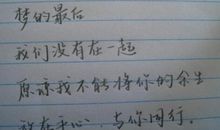 梦的最后
我们没有在一起
原谅我不能将你的余生
放在手心，与你同行.